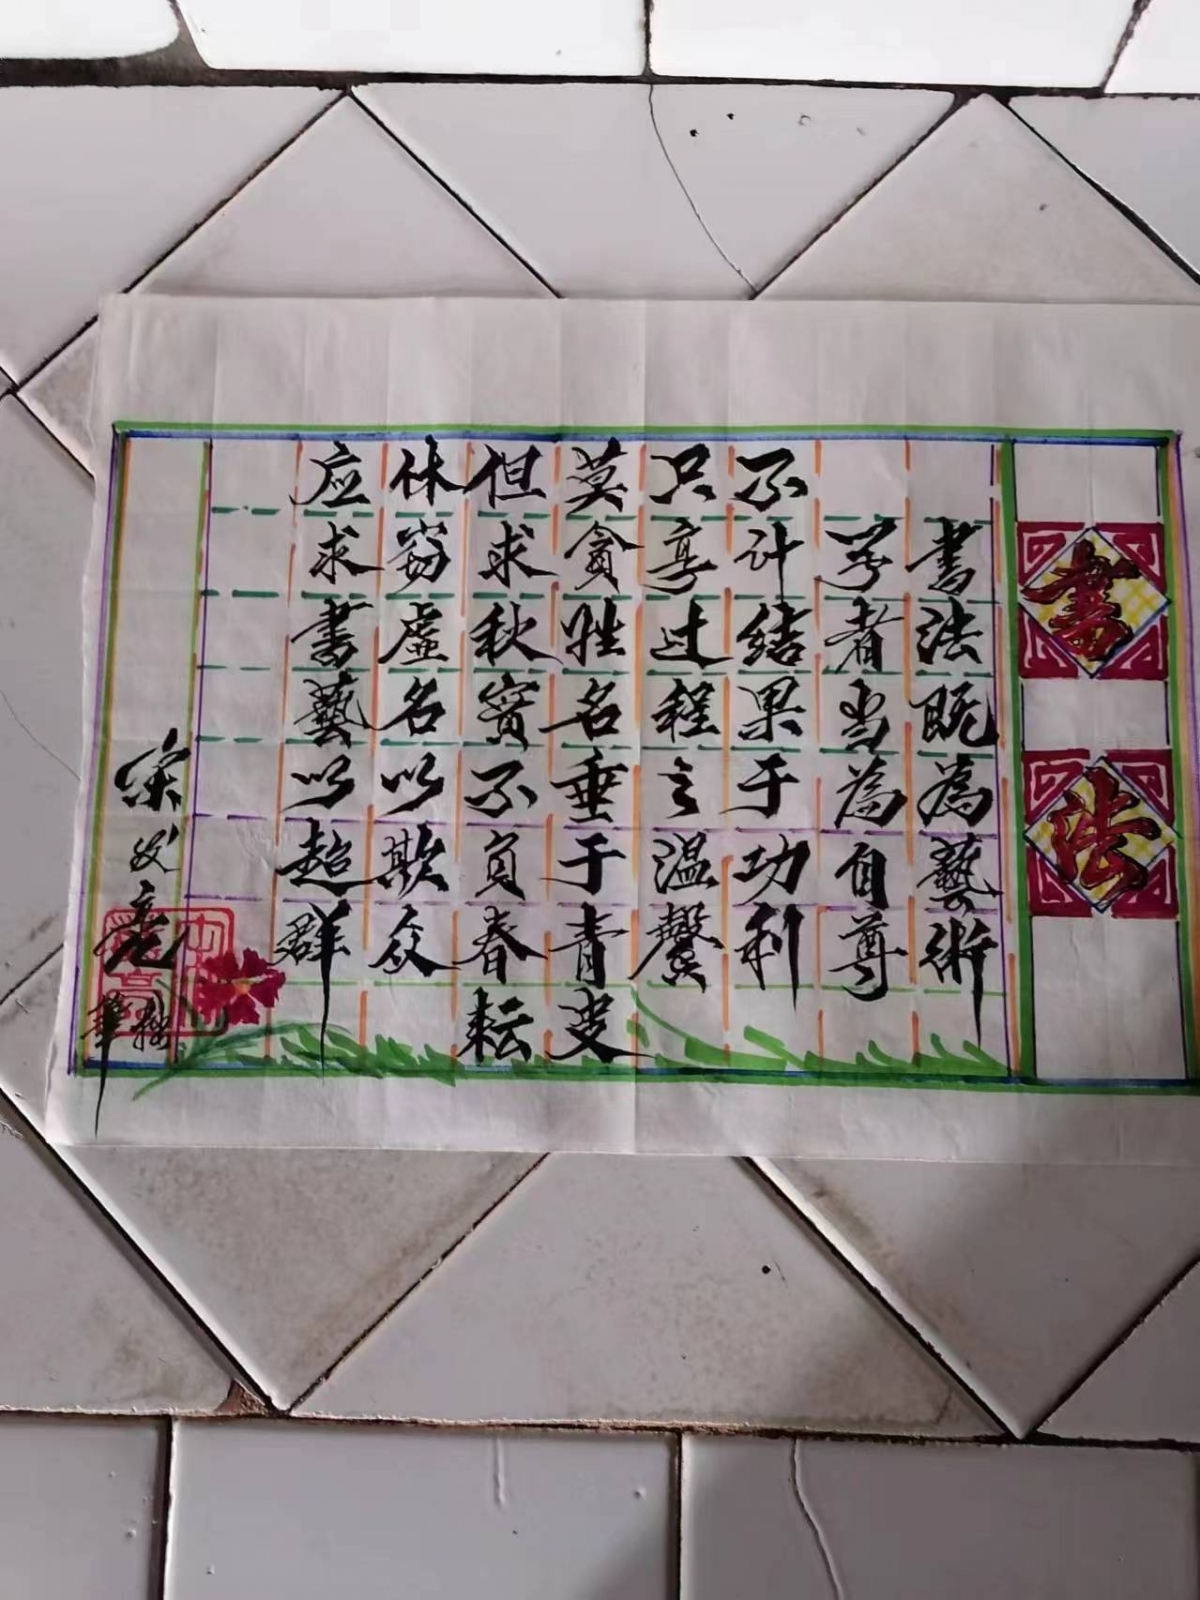 書法
書法既為藝術
学者当為自尊
不计结果于功利
只享过程之温馨
莫貪姓名垂于青史
但求秋實不負春耘
休窃虛名以欺众
应求書藝以超群
宋